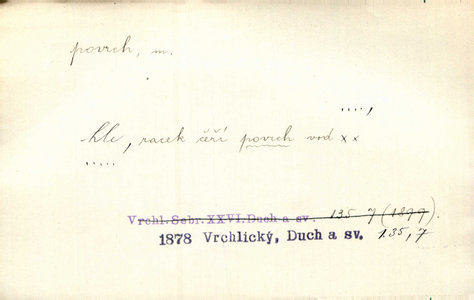 povrch, m.
....,
hle, racek čeří povrch vod x x
.....
Vrchl. Sebr. XXVI. Duch a sv. 135 7 (1899).
1878 Vrchlický, Duch a sv. 135, 7